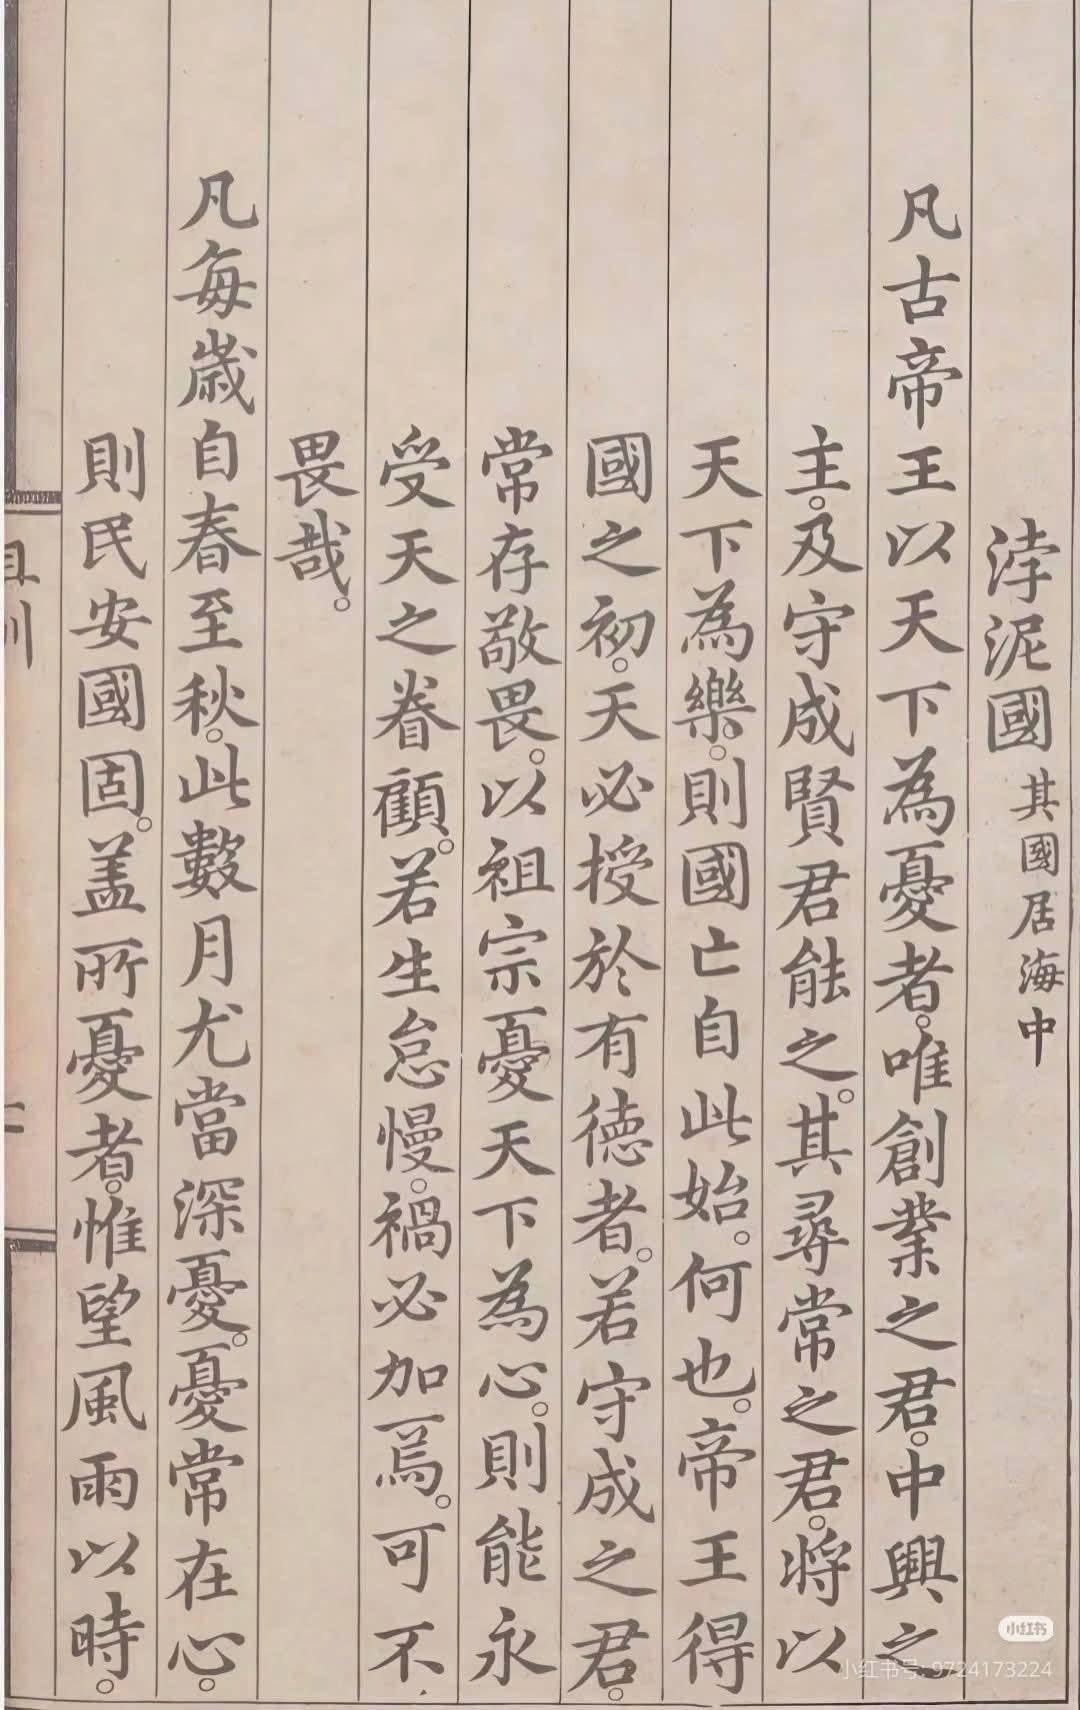 浡泥國其國居海中
凡古帝王以天下為憂者。唯創業之君。中興之
主。及守成賢君能之。其尋常之君。將以
天下為樂。則國亡自此始。何也。帝王得
國之初。天必授於有德者。若守成之君。
常存敬畏。以祖宗憂天下為心。則能永
受天之眷顧。若生怠慢。禍必加焉。可不
畏哉。
凡每歲自春至秋。此數月尤當深憂。憂常在心。
則民安國固。盖所憂者。惟望風雨以時。
小红书
小红书号: 9724173224